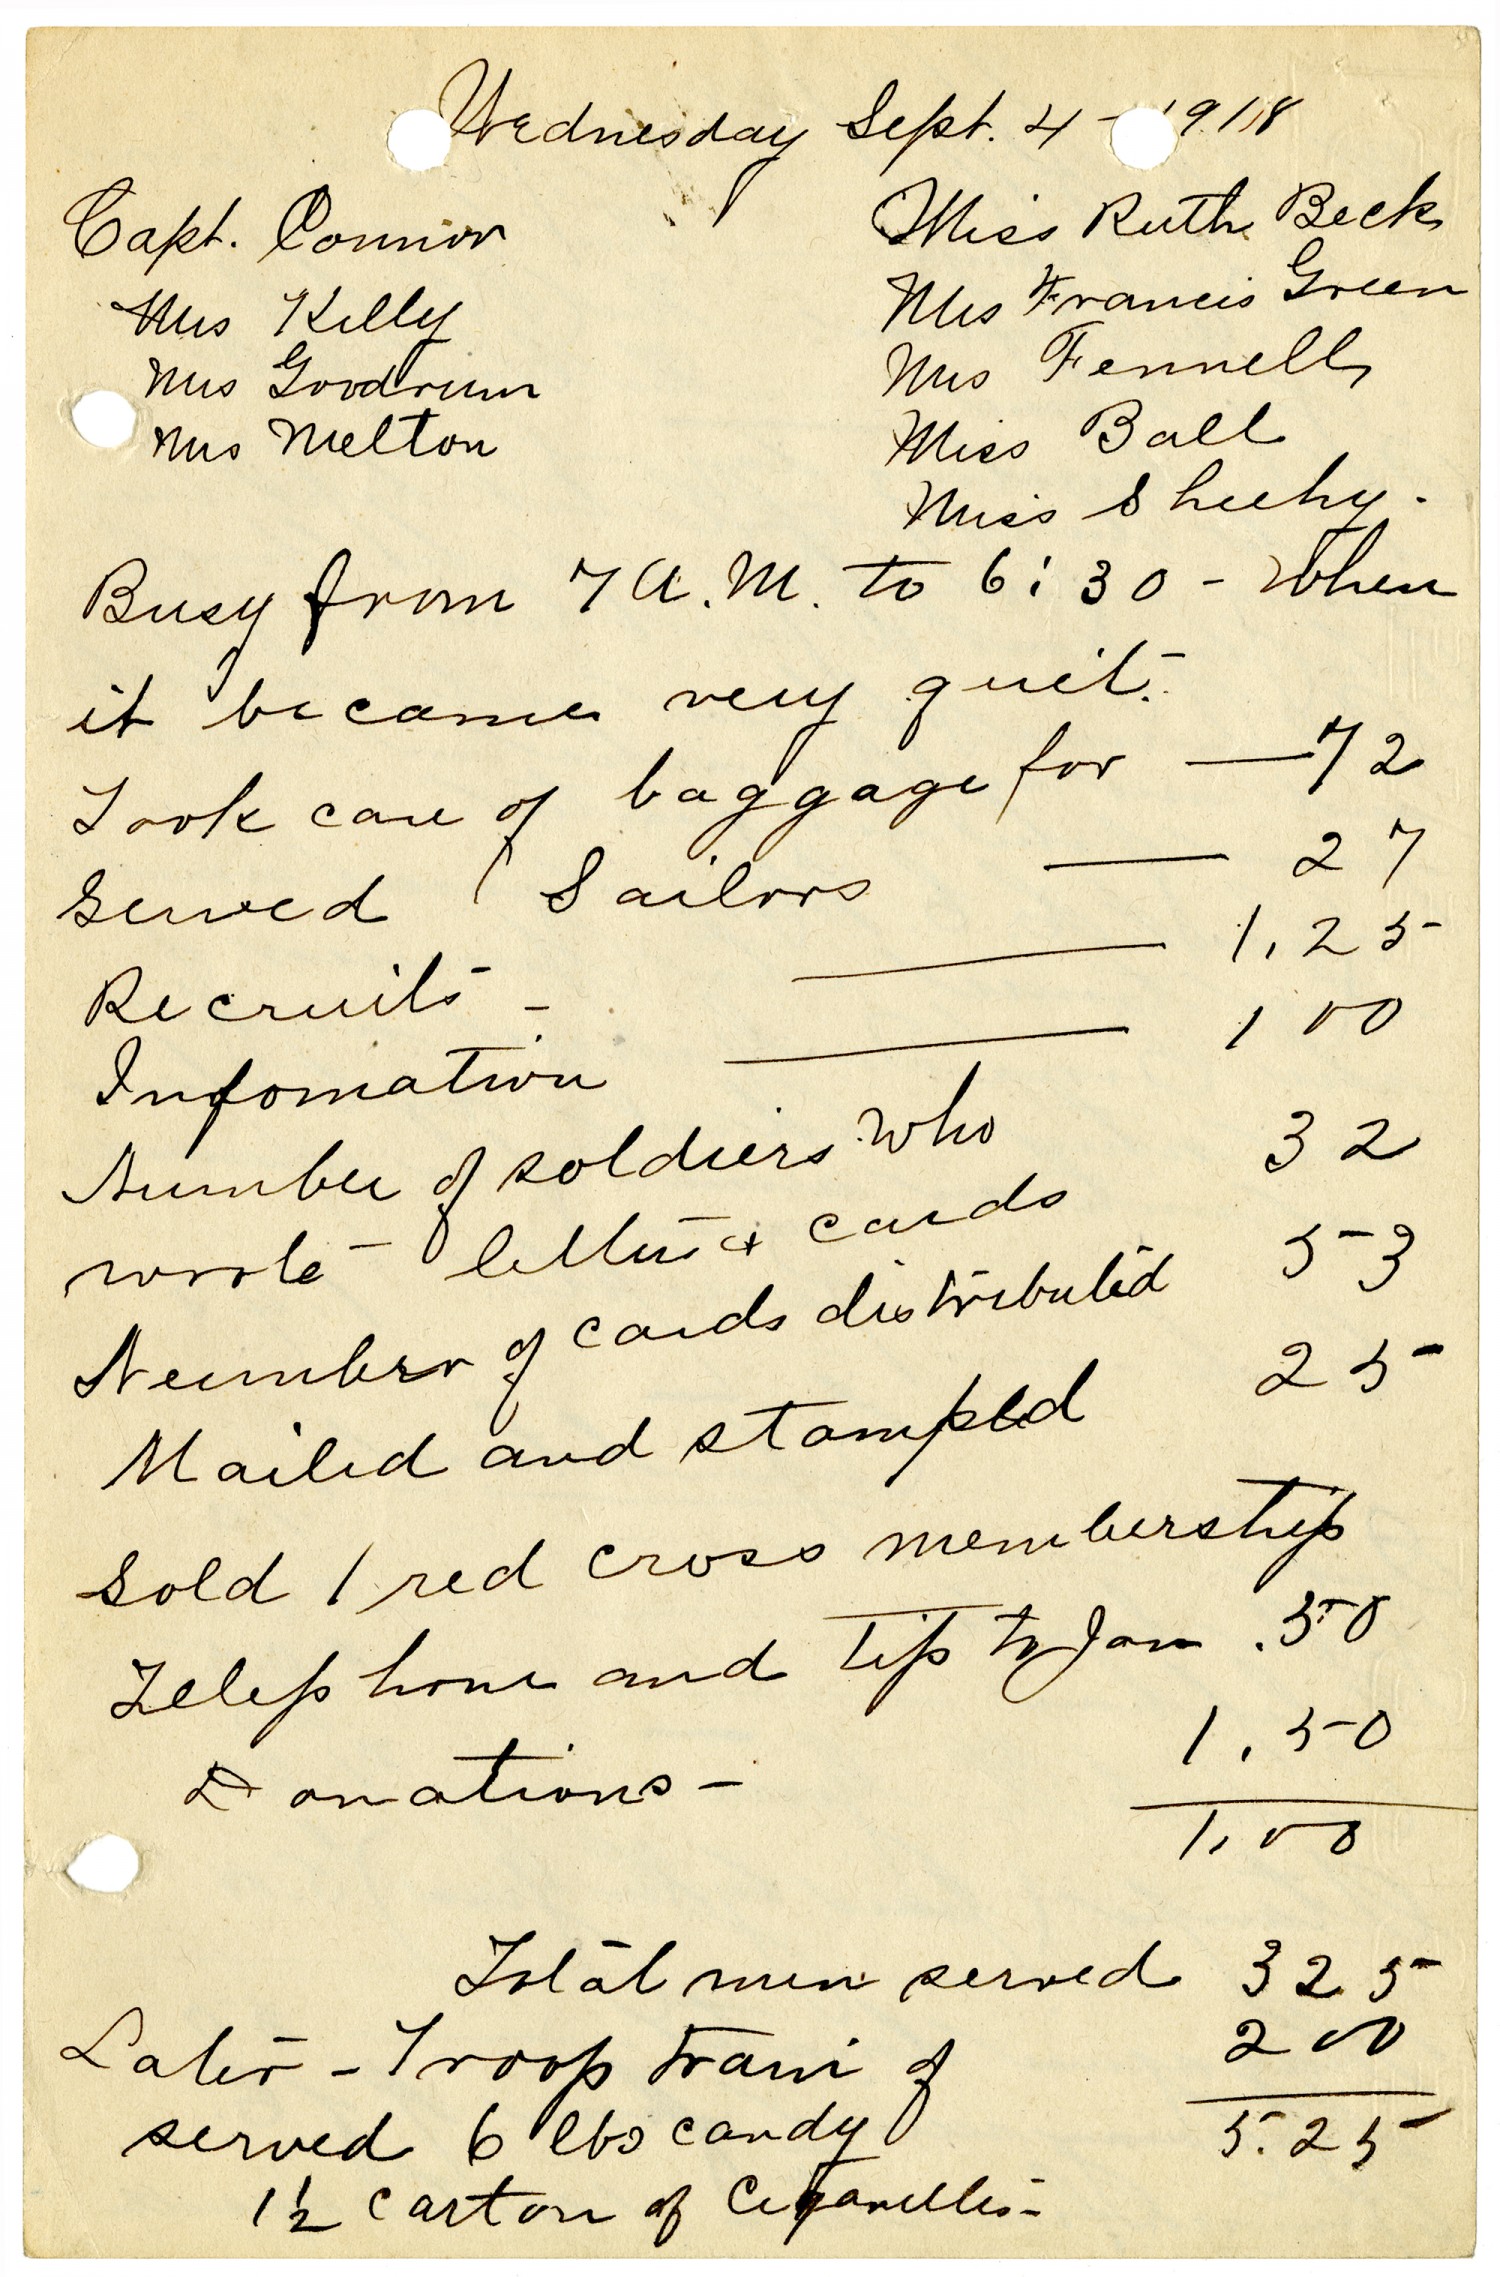 Wednesday Sept. 4 - 1918
Capt. Connor
Mrs Kelly
Mrs Goodrum
Mrs Melton
Miss Ruth Beck
Mrs Francis Green
Mrs Fennell
Miss Ball
Miss Sheehy.
Busy from 7 A.M. to 6:30 - When
it became very quiet.
Took care of baggage for — 72
Served Sailors — 27
Recruits - — 1,25
Infomation — 100
Number of soldiers who 32
wrote letters & cards
Number of cards distributed 53
Mailed and stamped 25
Sold 1 red cross membership
Telephone and tip to Jan .50
Donations - 1.50
1.00
Total men served 325
Later - Troop train of 200
served 6 lbs candy 5.25
1½ carton of Cigarettes -